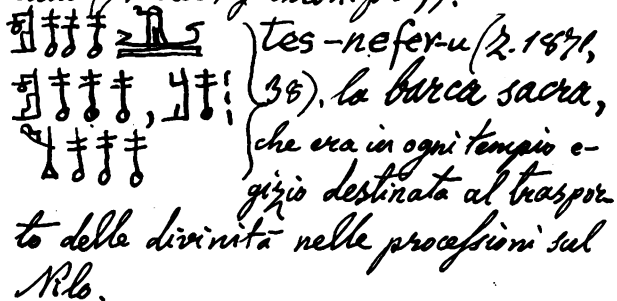 tes-nefer-u (Z. 1871,
38), la barca sacra,
che era in ogni tempio e-
gizio destinata al traspor-
to delle divinità nelle proceſsioni sul
Nilo.